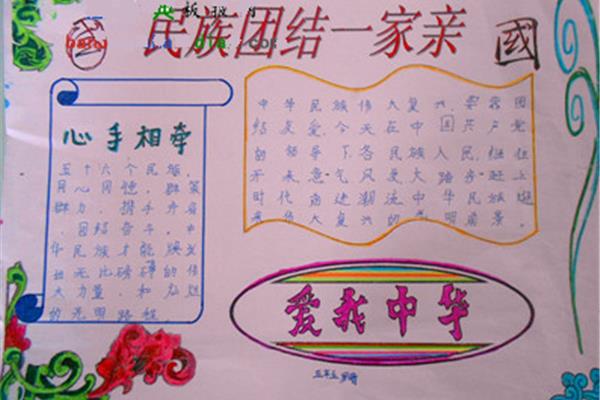 民族团结一家亲
國
心手相牵
五十六个民族，
同心同德，群策
群力，携手并肩
，团结奋斗，中
华民族才能焕发
出无比磅礴的伟
大力量，和灿烂
的光明路程。
中华民族伟大复兴，要靠团
结友爱，今天在中国共产党
的领导下，各民族人民，继往
开来，意气风发大踏步赶上
时代前进潮流中华民族
大复兴的光明前景。
爱我中华